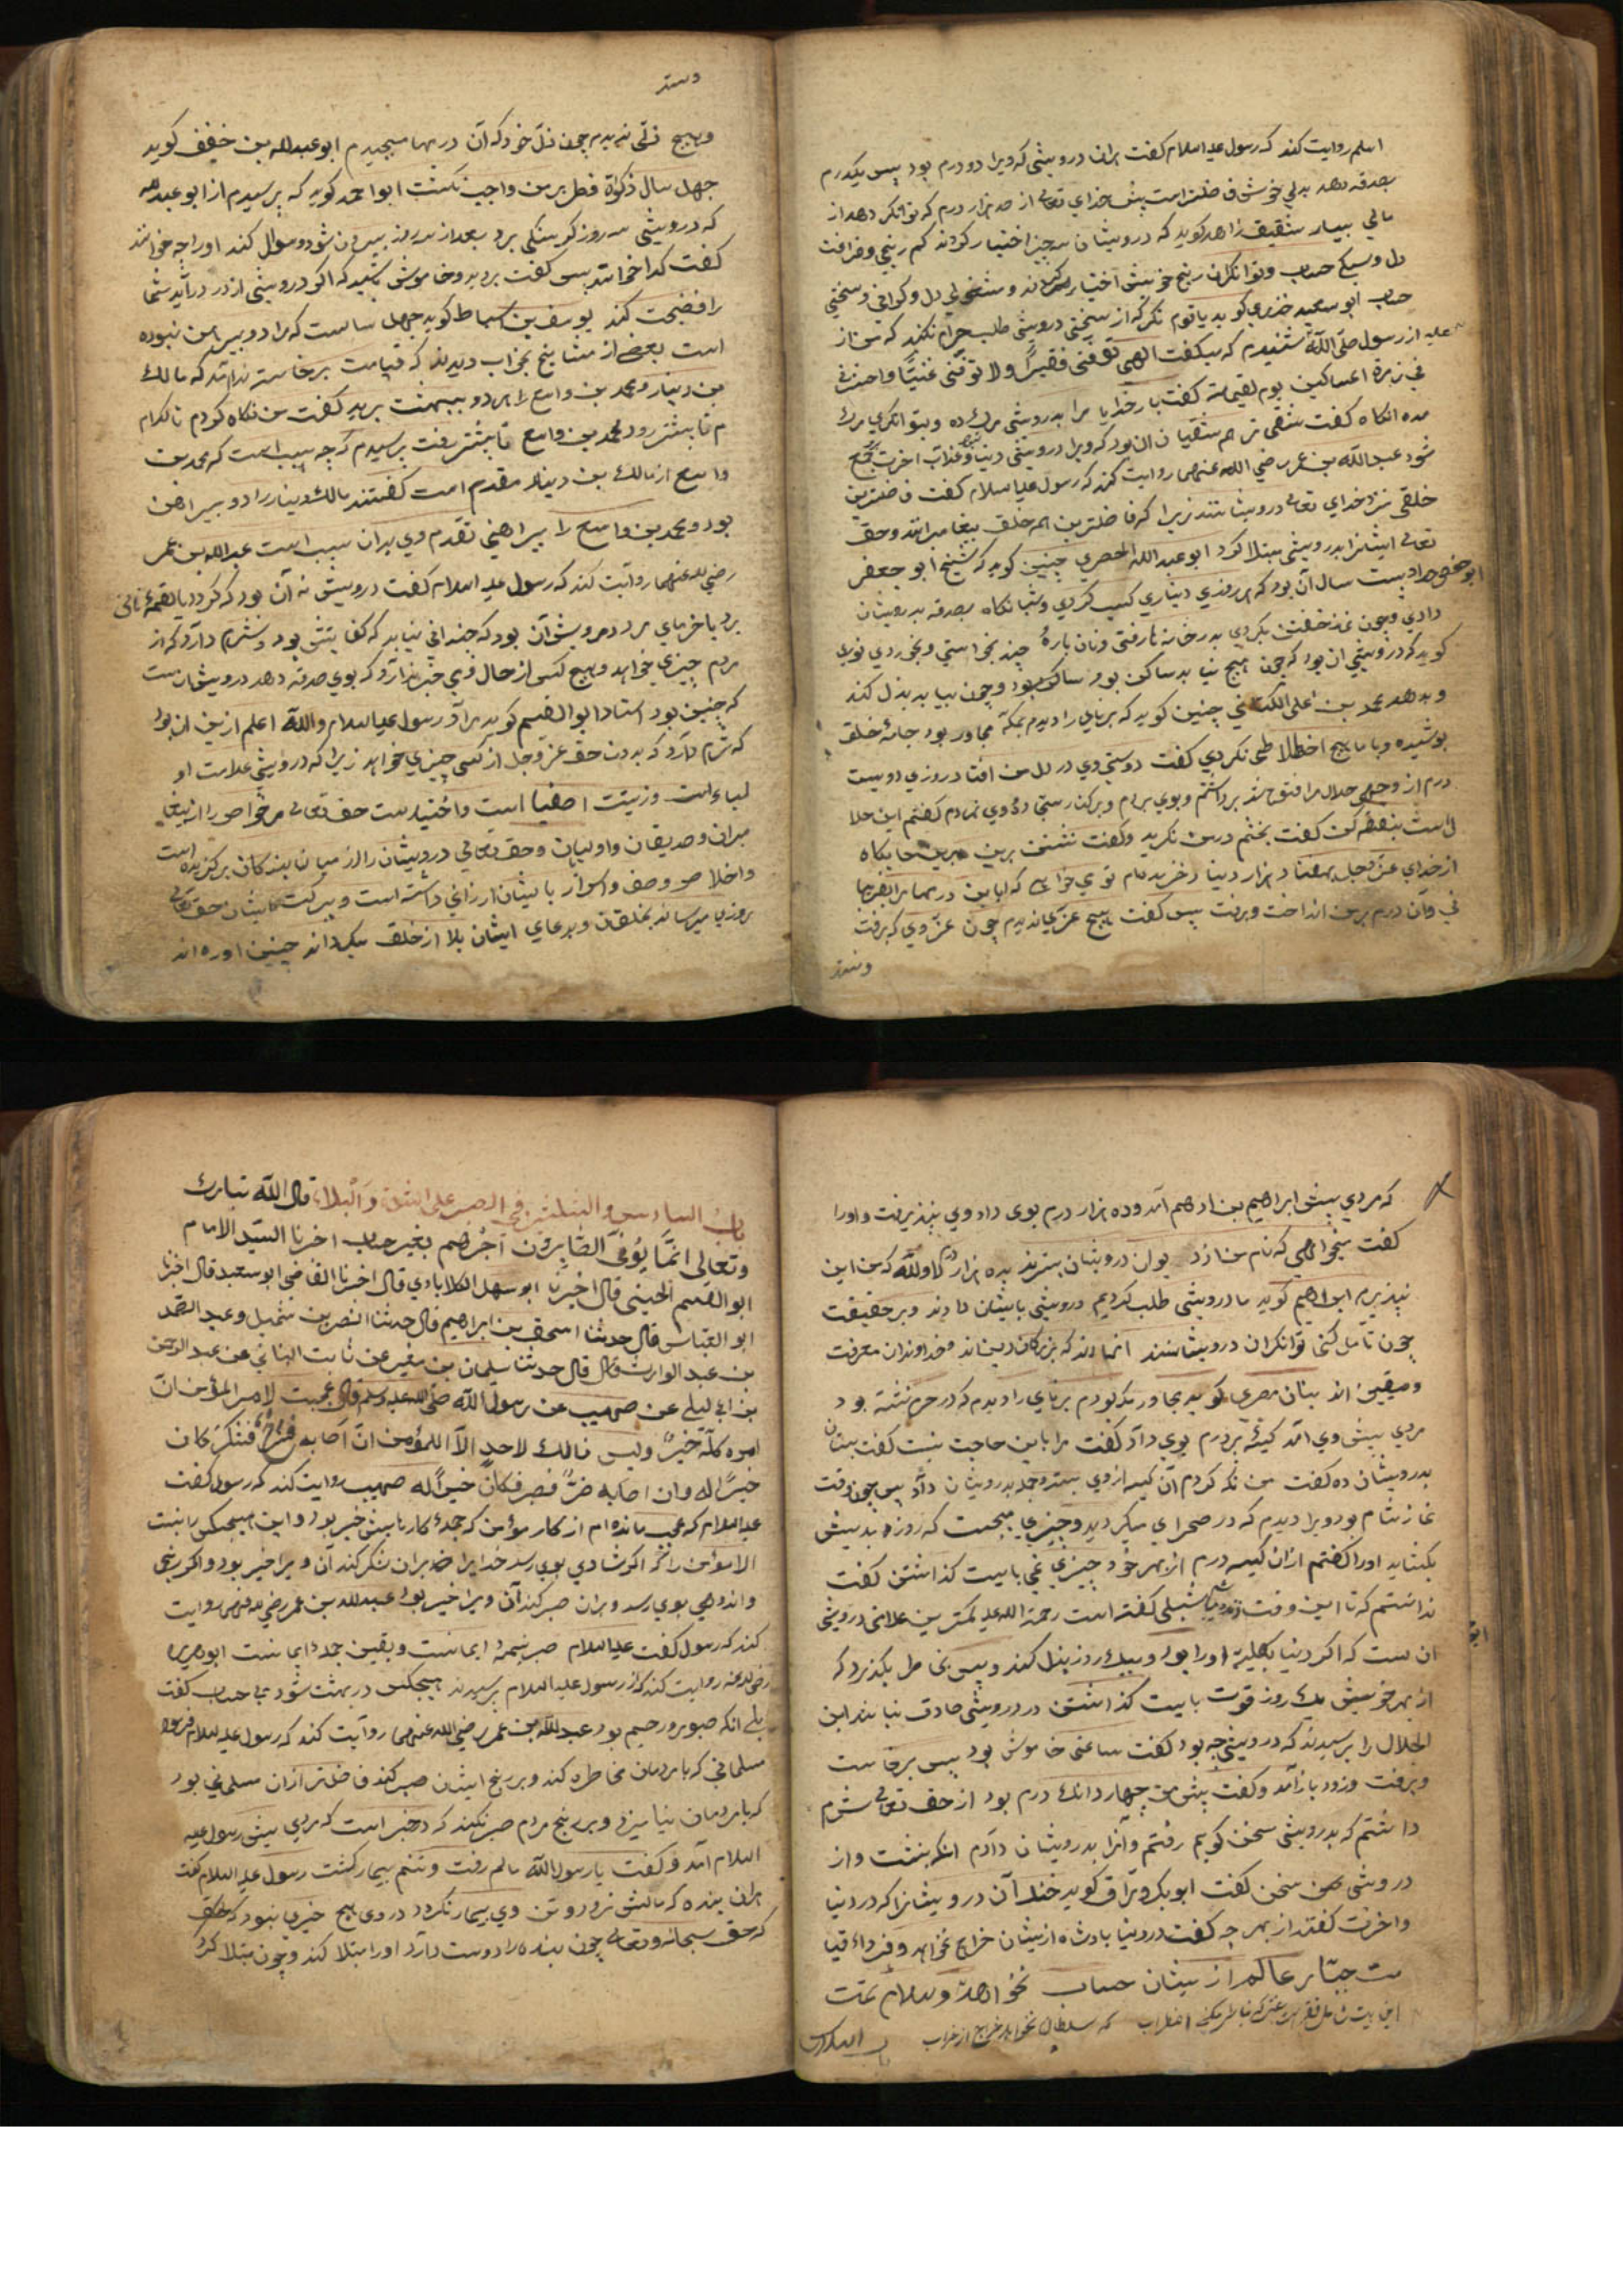 اسلم روایت کند که رسول علیه السلام کفت هران درویشی که ویرا دو درم بود پس یکدرم
بصدقه دهد بدلی خوش فاضلتر است پیش خدای تعالی از صد هزار درم که توانکر دهد از
مالی بسیار شقیق زاهد کوید که درویشان سه چیز اختیار کردند کم رنجی و فراغت
دل و سبکی حساب و توانکران رنج خویش اختیار کردند و مشغولی دل و کرانی و سختی
حساب ابو سعید خدری کوید یا قوم نکر که از سختی درویشی طلب حرام نکنید که من از
رسول صلی الله علیه شنیدم که میکفت الهی توفنی فقیرًا ولا توفنی غنیًّا واحشرنی
فی زمرة المساکین یوم القیمة کفت بار خدایا مرا بدرویشی مرك ده و بتوانکری مرك
مده انکاه کفت شقی تر هم شقیان ان بود که ویرا درویشی دنیا و عذاب اخرت جمع
شود عبد الله بن عمر رضی الله عنهما روایت کند که رسول علیه السلام کفت فاضلترین
خلقی نزد خدای تعالی درویشانند زیرا که فاضلترین همه خلق پیغامبرانند و حق
تعالی ایشانرا بدرویشی مبتلا کرد ابو عبد الله الحصری چنین کوید که شیخ ابو جعفر
بیست سال آن بود که هر روزی دیناری کسب کردی و شبانکاه بصدقه بدرویشان
دادی و چون نماز خفتن بکردی بدر خانه ها رفتی و نان پارهٔ چند بخواستی و بخوردی نوری
کوید که درویشی ان بود که چون هیچ نیابد ساکن بود و چون بیابد بذل کند
و بدهد محمد بن علی الکتانی چنین کوید که برنایی را دیدم بمکه مجاور بود جامهٔ خلق
پوشیده و با ما هیچ اختلاطی نکردی کفت دوستی وی در دل من افتاد روزی دویست
درم از وجهی حلال مرا فتوح شد برداشتم و بوی بردم و بر کنار سجاده وی نهادم کفتم این حلا
ل است بنفقه کن کفت بخشم در من نکرید و کفت نشستن برین جایکاه
از خدای عز وجل بهفتاد هزار دینار خریده ام تو می خواهی که باین درمها مرا بفریبی
وآن درم برمن انداخت و برفت پس کفت هیچ عزی ندیدم چون عز وی که برفت
دستر
وهیچ ذلّی ندیدم چون ذل خود که آن درمها میچیدم ابو عبدالله بن خفیف کوید
چهل سال زکوة فطر بر من واجب نکشت ابو احمد کوید که پرسیدم از ابو عبدالله
که درویشی سه روز کرسنکی برد بعد از سه روز بیرون شود و سؤال کند او را چه خوانند
کفت کدا خوانند پس کفت برید و خاموش باشید که اکر درویشی از در درآید شما
را فضیحت کند یوسف بن اسباط کوید چهل سالست که مرا دو پیراهن نبوده
است بعضی از مشایخ بخواب دیدند که قیامت برخاسته ندا آمد که مالك
بن دینار و محمد بن واسع را هر دو ببهشت برید کفت من نکاه کردم تا کدام
پیشتر رود محمد بن واسع پیشتر رفت پرسیدم که چه سبب است که محمد بن
واسع از مالك بن دینار مقدم است کفتند مالك دینار را دو پیراهن
بود و محمد بن واسع را پیراهنی تقدم وی بدان سبب است عبدالله بن عمر
رضی الله عنهما روایت کند که رسول علیه السلام کفت درویش نه آن بود که کردد یا لقمهٔ نانی
برد یا خرمای برد درویش آن بود که چندانی نیابد که کفایتش بود و شرم دارد که از
مردم چیزی خواهد و هیچ کس از حال وی خبر ندارد که بوی صدقه دهد درویش آنست
که چنین بود استاد ابو القسم کوید مراد رسول علیه السلام والله اعلم ازین ان بود
که شرم دارد که بدون حق عز وجل از کسی چیزی خواهد زیرا که درویشی علامت او
لیاء است وزینت اصفیا است و اختیارست حق تعالی مر خواص را از پیغا
مبران و صدیقان و اولیا و حق تعالی درویشان را از میان بندکان برکزیده است
واخلاص و وصف و اسرار با ایشان ارزانی داشته است و ببرکت ایشان حق تعالی
روزی میرساند بخلقان و بدعای ایشان بلا از خلق میکرداند چنین اورده اند
که مردی پیش ابراهیم بن ادهم آمد و ده هزار درم بوی داد وی نپذیرفت و اورا
کفت میخواهی که نام من از دیوان درویشان بستریند بده هزار درم لا والله که من این
نپذیرم ابراهیم کوید ما درویشی طلب کردیم درویشی بایشان دادند و بر حقیقت
چون تأمل کنی توانکران درویشانند انها اند که بزرکان دین اند و خداوندان معرفت
و یقین اند بنان مصری کوید مجاور مکه بودم برنای را دیدم که در حرم نشسته بود
مردی پیش وی آمد کیسهٔ پر درم بوی داد کفت مرا باین حاجت نیست کفت بستان
بدرویشان ده کفت من نکه کردم آن کیسه از وی بستد و جمله بدرویشان داد پس چون وقت
نماز شام بود ویرا دیدم که در صحرای میکردید و چیزی میجست که روزه بدیش
بکشاید اورا کفتم ازان کیسه درم از بهر خود چیزی نمی بایست کذاشتن کفت
ندانستم که تا این وقت شبلی کفته است رحمة الله علیه کمترین علامتی درویشی
ان ست که اکر دنیا بکلیه اورا بود و بیك روز بذل کند و پس بخاطر بکذرد که
از بهر خویش یك روز قوت بایست کذاشتن در درویشی صادق نباشد ابن
الجلا را پرسیدند که درویشی چه بود کفت ساعتی خاموش بود پس برخاست
و برفت و زود باز آمد و کفت پیش من چهار دانك درم بود از حق تعالی شرم
داشتم که بدرویشی سخن کویم رفتم و آنرا بدرویشان دادم انکه بنشست و از
درویشی سخن کفت ابوبکر وراق کوید خنك آن درویشانرا که در دنیا
و اخرت کفتند از بهر چه کفت در دنیا پادشاه ازیشان خراج نخواهد و فرداء قیا
مت جبار عالم از یشان حساب نخواهد والسلام تمت
که سلطان نخواهد خراج از خراب
باب السادس
باب السادس والثلثین فی الصبر علی الشدة والبلاء، قال الله تبارك
وتعالی انّما یُوَفَّی الصّابِرُونَ اَجْرَهُم بغیر حساب اخبرنا السیّد الامام
ابو القسم الحسینی قال اخبرنا ابو سهل الکلابادی قال اخبرنا القاضی ابو سعید قال اخبرنا
ابو العباس قال حدثنا اسحق بن ابراهیم قال حدثنا النضر بن شمیل وعبد الصمد
بن عبد الوارث قال قال حدثنا سلیمان بن مغیر عن ثابت البنانی عن عبد الرحمن
بن ابی لیلی عن صهیب عن رسول الله صلی الله علیه وسلم قال عجبت لامر المؤمن انّ
امره کلّه خیرٌ ولیس ذالك لاحدٍ الّا للمؤمن ان اصابه فشکر کان
خیرًا له وان اصابه ضرٌّ فصبر فکان خیرًا له صهیب روایت کند که رسول کفت
علیه السلام که عجب مانده ام از کار مؤمن که جملهٔ کارهایش خیر بود و این هیچکس را نیست
الا مؤمن را که اکر شادی بوی رسد خدایرا بران شکر کند آن ویرا خیر بود و اکر رنجی
و اندوهی بوی رسد و بران صبر کند آن ویرا خیر بود عبدالله بن عمر رضی الله عنهما روایت
کند که رسول کفت علیه السلام صبر نیمهٔ ایمانست و یقین جملهٔ ایمانست ابو هریره
رضی الله عنه روایت کند که از رسول علیه السلام پرسیدند هیچکس در بهشت شود بی حساب کفت
بلی انکه صبور و رحیم بود عبدالله بن عمر رضی الله عنهما روایت کند که رسول علیه السلام فرمود
مسلمانی که با مردمان مخاطره کند و بر رنج ایشان صبر کند فاضلتر ازان مسلمانی بود
که با مردمان نیامیزد و بر رنج مردم صبر نکند که در خبر است که مردی پیش رسول علیه
السلام آمد و کفت یا رسول الله مالم رفت و تنم بیمار کشت رسول علیه السلام کفت
هران بنده که مالش نرود و تن وی بیمار نکردد در وی هیچ خیری نبود
که حق سبحانه وتعالی چون بنده را دوست دارد اورا مبتلا کند و چون مبتلا کرد